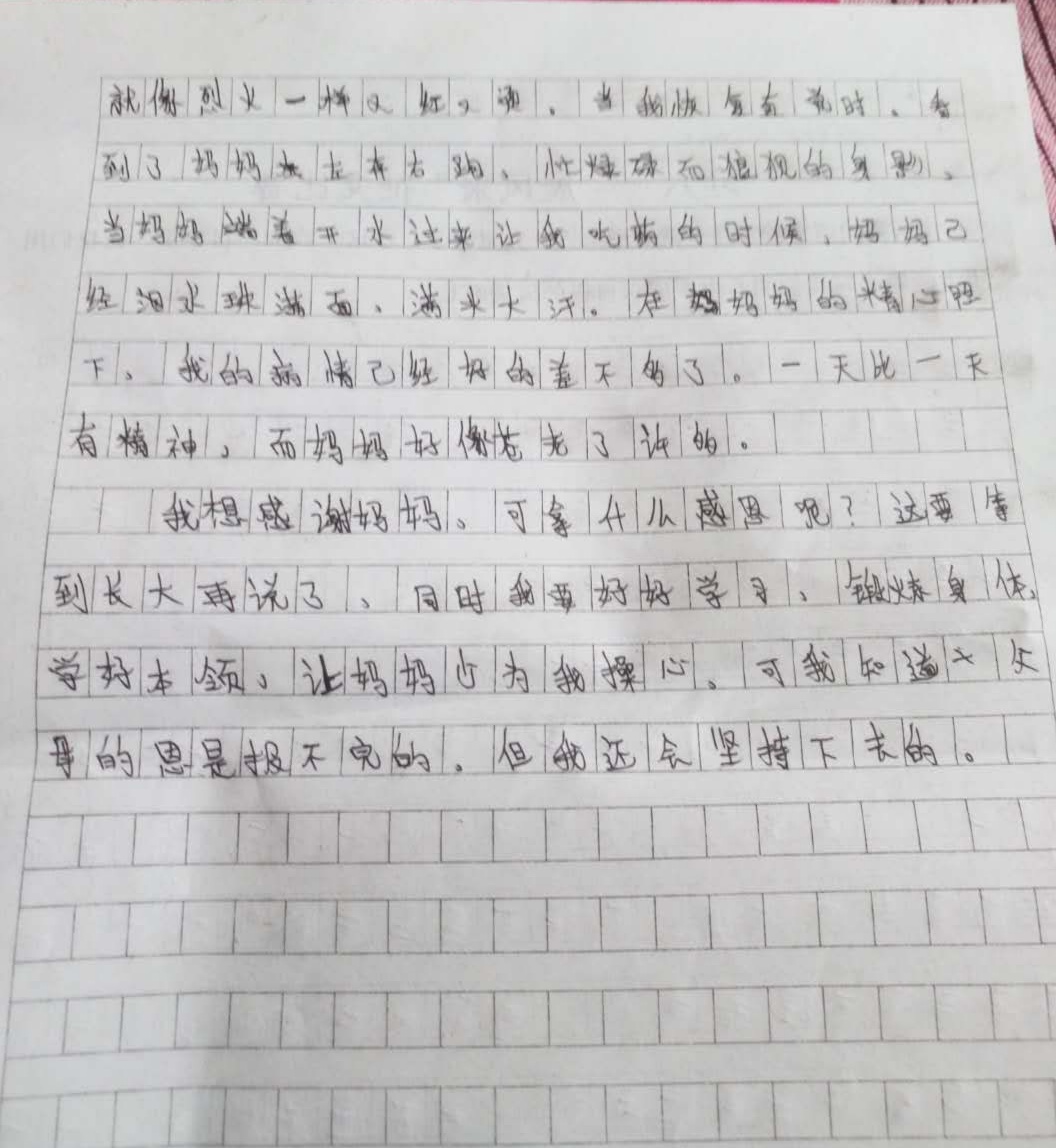 就像烈火一样又红又烫。当我恢复直觉时,看
到了妈妈左奔右跑、忙碌而狼狈的身影。
当妈妈端着开水过来让我吃药的时候,妈妈已
经泪水珠满面、满头大汗。在妈妈的精心照
下,我的病情已经好的差不多了。一天比一天
有精神,而妈妈好像苍老了许的。
我想感谢妈妈、可拿什么感恩呢?这要等
到长大再说了、同时我要好好学习、锻炼身体,
学好本领,让妈妈少为我操心。可我知道父
母的恩是报不完的。但我还会坚持下去的。